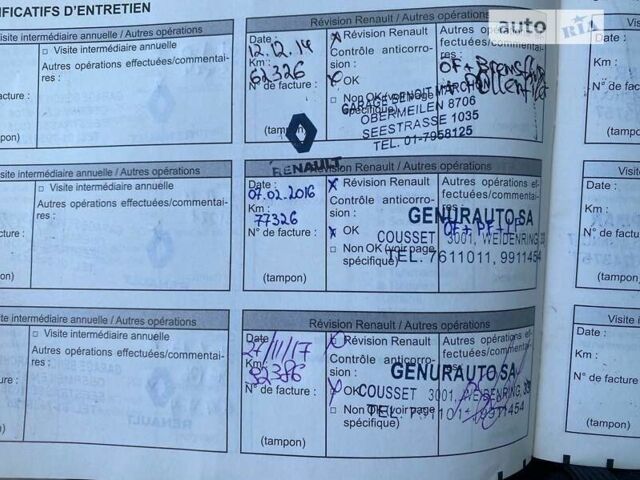 IFICATIFS D'ENTRETIEN
auto RIA
Visite intermédiaire annuelle / Autres opérations
□ Visite intermédiaire annuelle
Autres opérations effectuées/commentai-
res :
(tampon)
Révision Renault / Autres opérations
Date :
12.12.14
Km :
62326
N° de facture :
(tampon)
Révision Renault
Contrôle anticorro-
sion :
OK
Non OK (voir page
spécifique)
Autres opérations ef-
fectuées/commentai-
res :
OF +
+ Pollenfilter
GARAGE BENOIT MARCHON
OBERMEILEN 8706
SEESTRASSE 1035
TEL. 01-7958125
RENAULT
Visite intermédiaire annuelle / Autres opérations
□ Visite intermédiaire annuelle
Autres opérations effectuées/commentai-
res :
(tampon)
Révision Renault / Autres opérations
Date :
07.02.2016
Km :
77326
N° de facture :
(tampon)
Révision Renault
Contrôle anticorro-
sion :
OK
□ Non OK (voir page
spécifique)
Autres opérations ef-
fectuées/commentai-
res :
GENURAUTO SA
COUSSET 3001, WEIDENRING, 33
TEL. 7611011, 9911454
Visite intermédiaire annuelle / Autres opérations
□ Visite intermédiaire annuelle
Autres opérations effectuées/commentai-
res :
(tampon)
Révision Renault / Autres opérations
Date :
27/11/17
Km :
92386
N° de facture :
(tampon)
Révision Renault
Contrôle anticorro-
sion :
OK
□ Non OK (voir page
spécifique)
Autres opérations ef-
fectuées/commentai-
res :
GENURAUTO SA
COUSSET 3001, WEIDENRING, 33
TEL. 7611011, 9911454